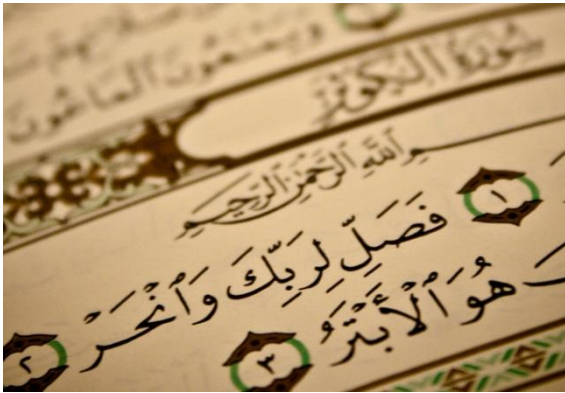 وَيَمْنَعُونَ ٱلْمَاعُونَ
سُورَةُ ٱلْكَوْثَرِ
بِسْمِ ٱللَّهِ ٱلرَّحْمَٰنِ ٱلرَّحِيمِ
١ فَصَلِّ لِرَبِّكَ وَٱنْحَرْ ٢
هُوَ ٱلْأَبْتَرُ ٣